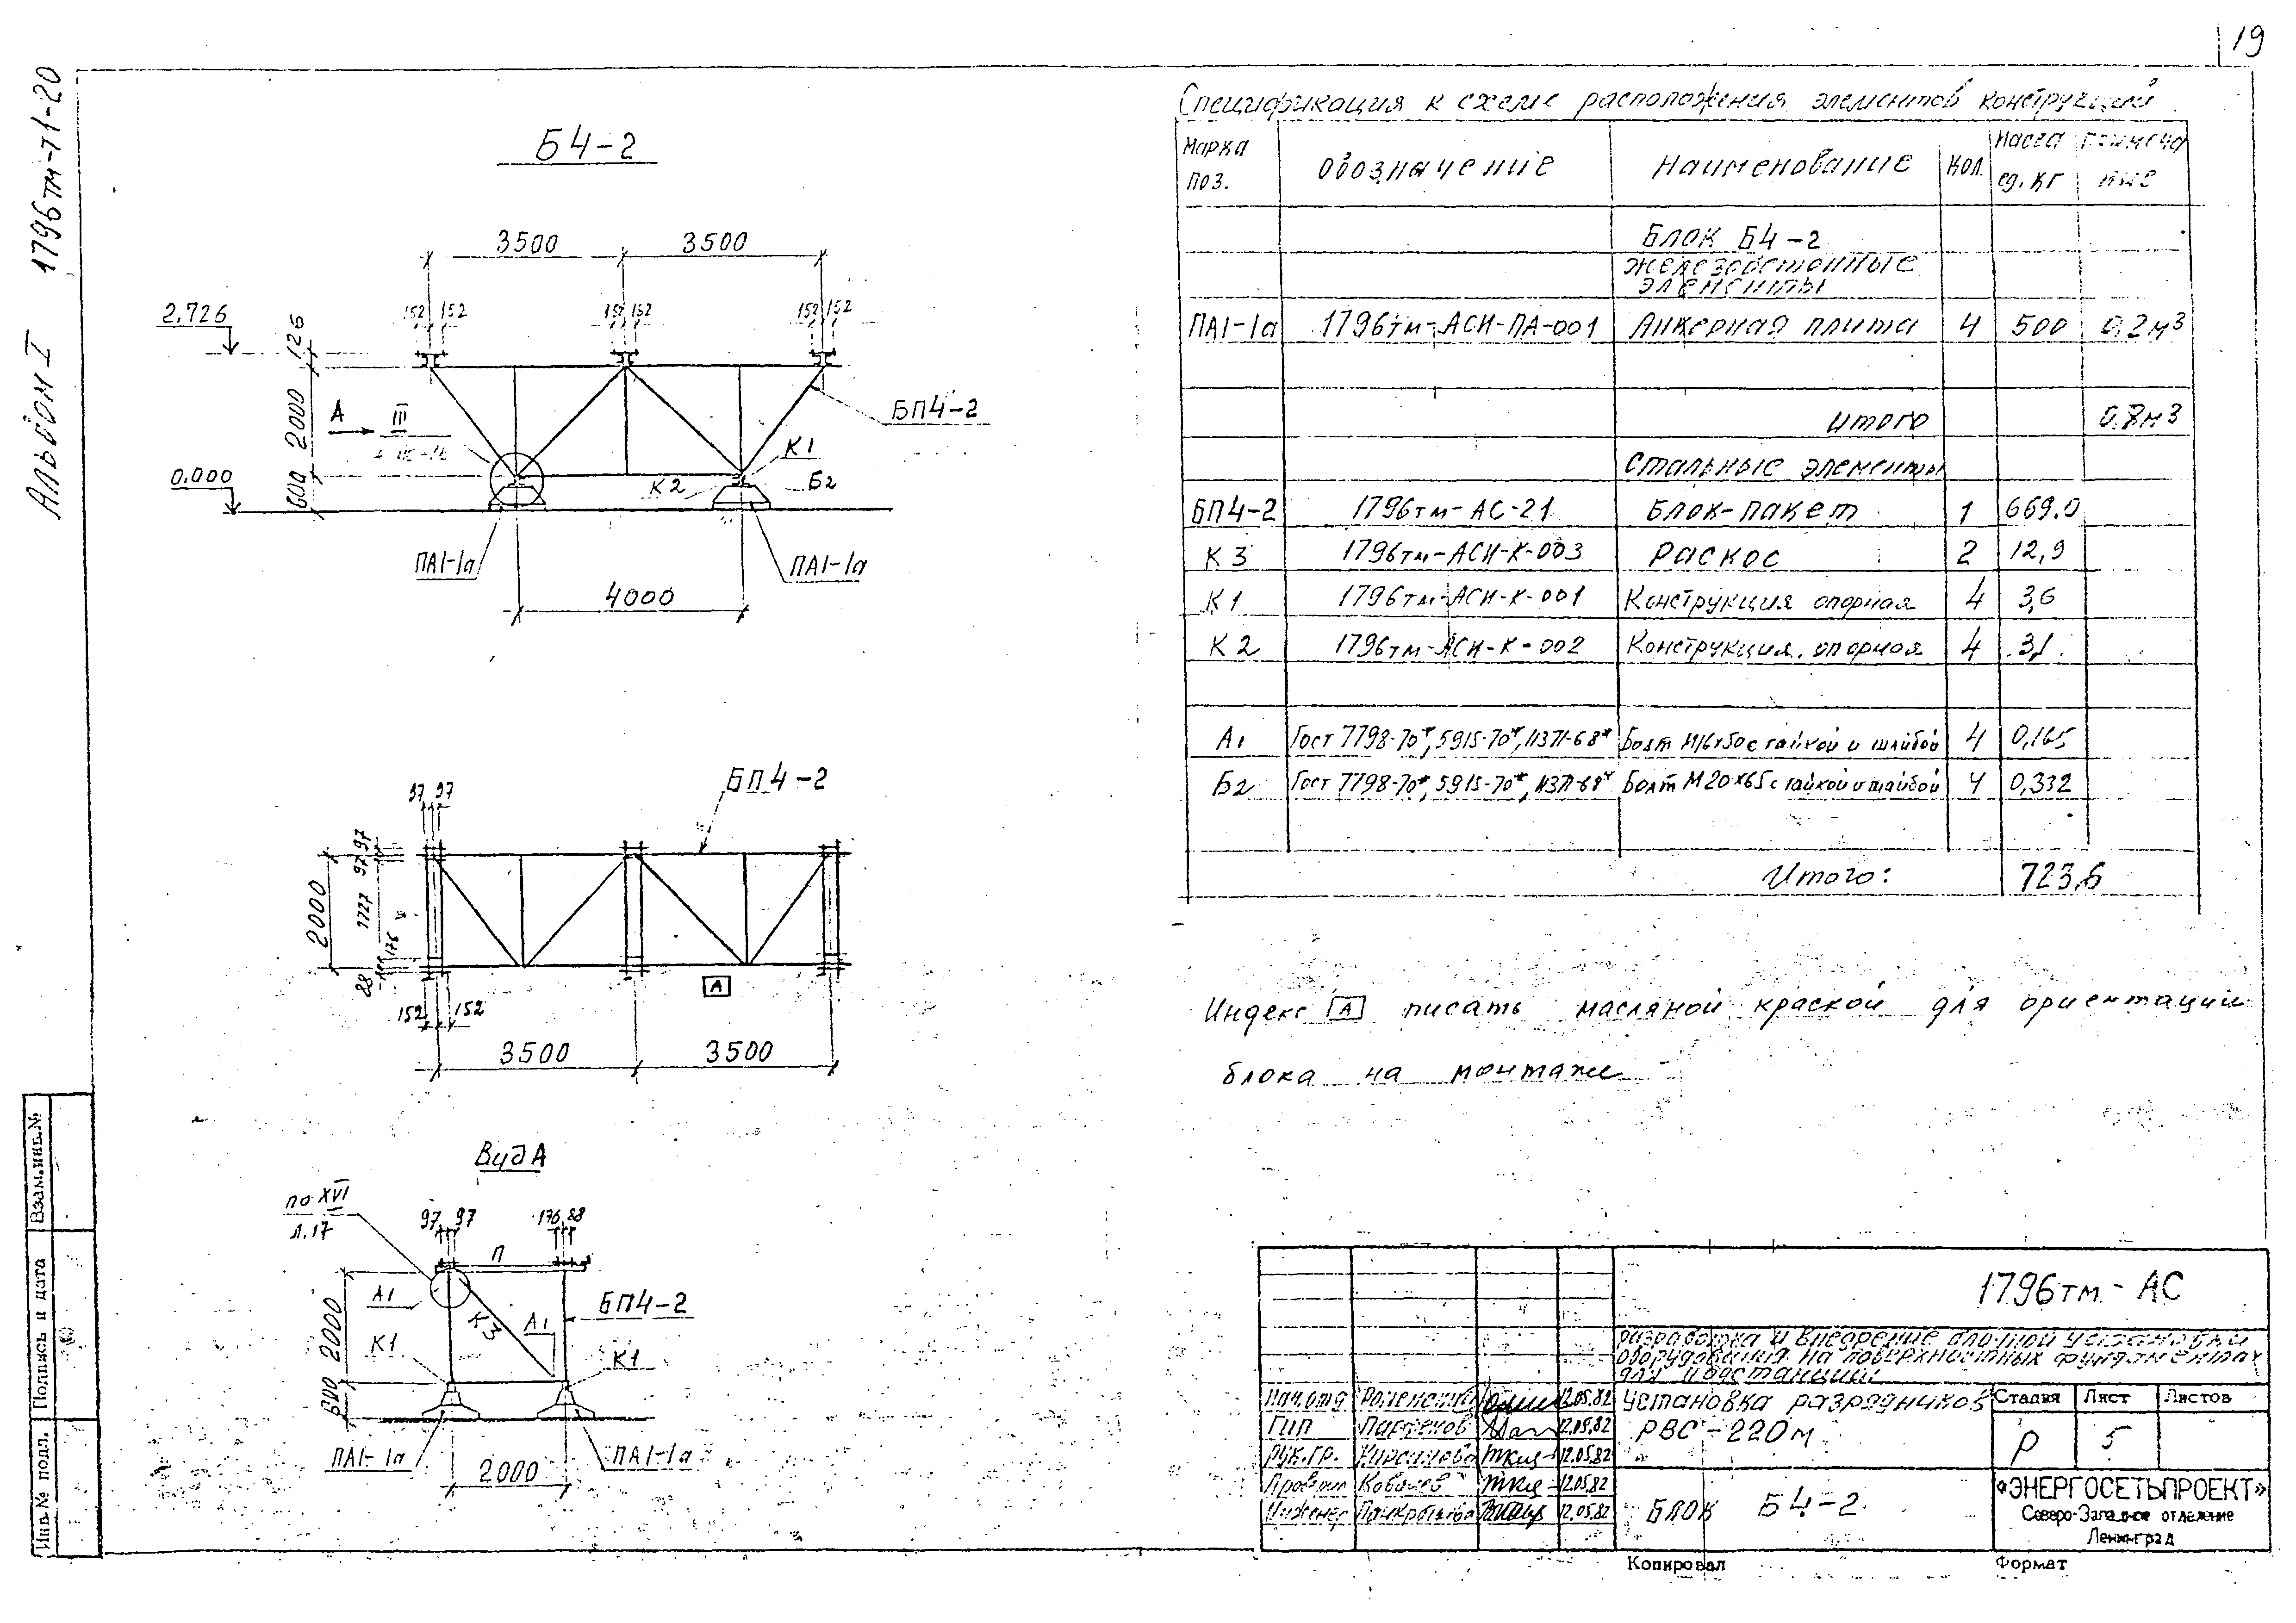 19
Альбом I 1796тм-т1-20
Б4-2
3500 3500
152 152 152 152 152 152
2.726
126
2000
600
0.000
А
III
БП4-2
К1
К2
Б2
ПА1-1а ПА1-1а
4000
БП4-2
97 97
97 97
2000
1727
176
88
152 152
А
3500 3500
Вид А
по XVI
л.17
97 97 176 88
П
А1
К3
А1
БП4-2
К1
К1
2000
ПА1-1а ПА1-1а
2000
Спецификация к схеме расположения элементов конструкций
Марка поз. Обозначение Наименование Кол. Масса ед. кг Примечание
Блок Б4-2
Железобетонные элементы
ПА1-1а 1796тм-АСИ-ПА-001 Анкерная плита 4 500 0.2м3
Итого 0.8м3
Стальные элементы
БП4-2 1796тм-АС-21 Блок-пакет 1 669.0
К3 1796тм-АСИ-К-003 Раскос 2 12,9
К1 1796тм-АСИ-К-001 Конструкция опорная 4 3,6
К2 1796тм-АСИ-К-002 Конструкция опорная 4 3,1
А1 Гост 7798-70*, 5915-70*, 11371-68* Болт М16х50 с гайкой и шайбой 4 0,165
Б2 Гост 7798-70*, 5915-70*, 11371-68* Болт М20х65 с гайкой и шайбой 4 0,332
Итого: 723,6
Индекс А писать масляной краской для ориентации
блока на монтаже
1796тм-АС
Разработка и внедрение блочной установки
оборудования на поверхностных фундаментах
для подстанций
Нач.отд 12.05.82
ГИП 12.05.82
Рук.гр. 12.05.82
Ковалев 12.05.82
Инженер Панкратьева 12.05.82
Установка разрядников
РВС-220м
Блок Б4-2
Стадия Лист Листов
Р 5
«ЭНЕРГОСЕТЬПРОЕКТ»
Северо-Западное отделение
Ленинград
Копировал Формат
Взам.инв.№
Подпись и дата
Инв.№ подл.